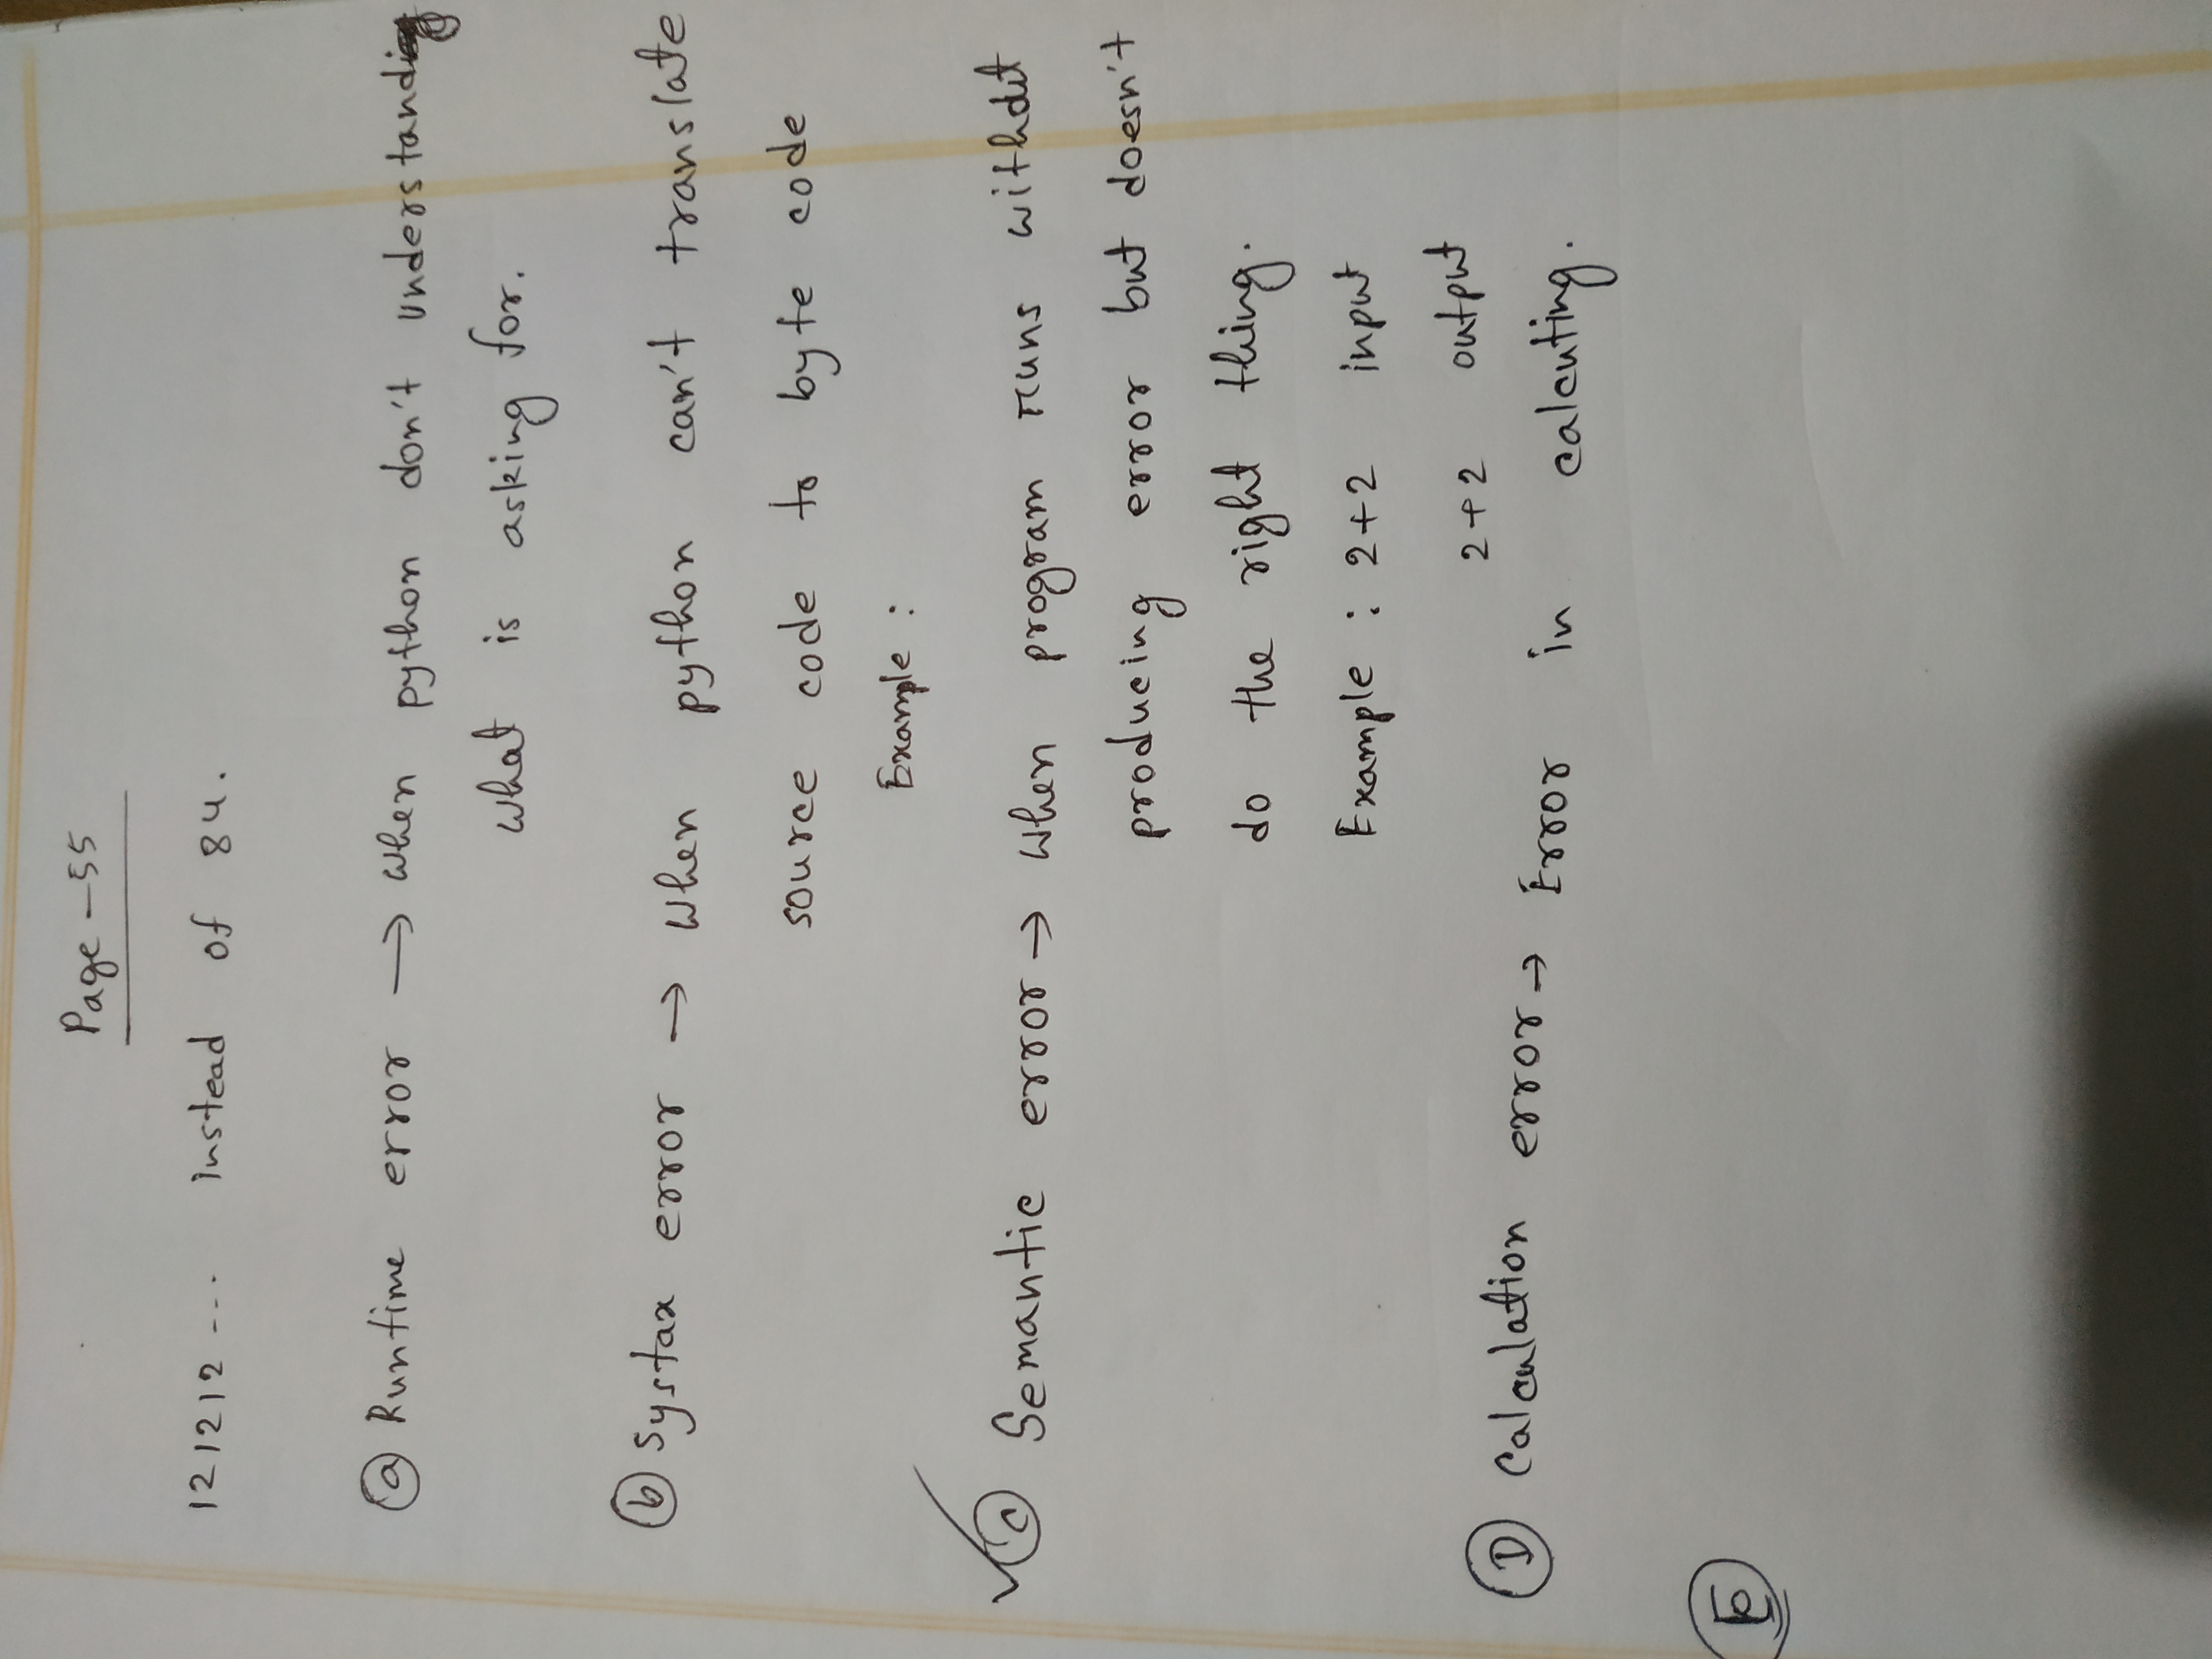 Page - 55
121212 --- instead of 84.
ⓐ Runtime error → When python don't understand
what is asking for.
ⓑ Systax error → When python can't translate
source code to byte code
Example :
ⓒ Semantic error → When program runs without
producing error but doesn't
do the right thing.
Example : 2+2 input
2+2 output
Ⓓ Calculation error → Error in calcuting.
Ⓔ